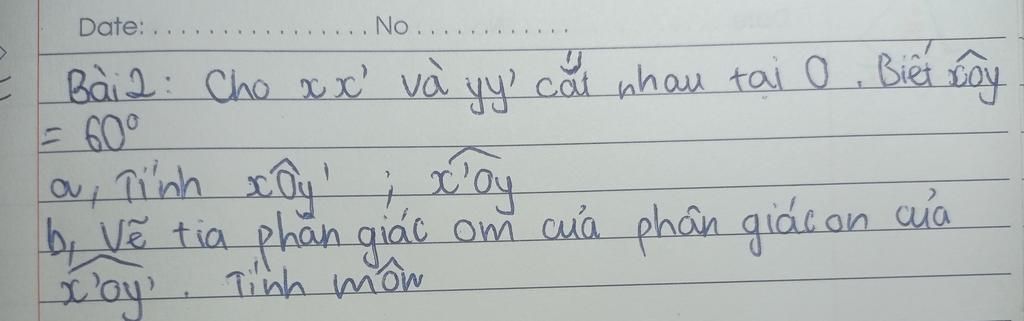 Date:................. No ............
Bài 2: Cho xx' và yy' cắt nhau tại O. Biết xôy
= 60°
a, Tính xôy' ; x'ôy
b, Vẽ tia phân giác om của phân giác on của
x'ôy'. Tính môn